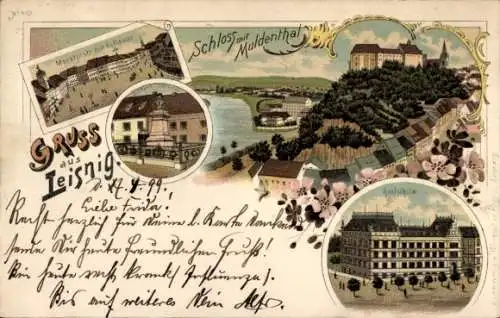 Marktplatz mit Rathaus
Schloss mit
Muldenthal
Gruss
aus
Leisnig.
d. 17.4.99.
Liebe Frida!
Recht herzlich für Deine l. Karte dankend
sende Dir heute freundlichen Gruß!
Bin heute recht krank (Influenza).
Bis auf weiteres Dein
Realschule